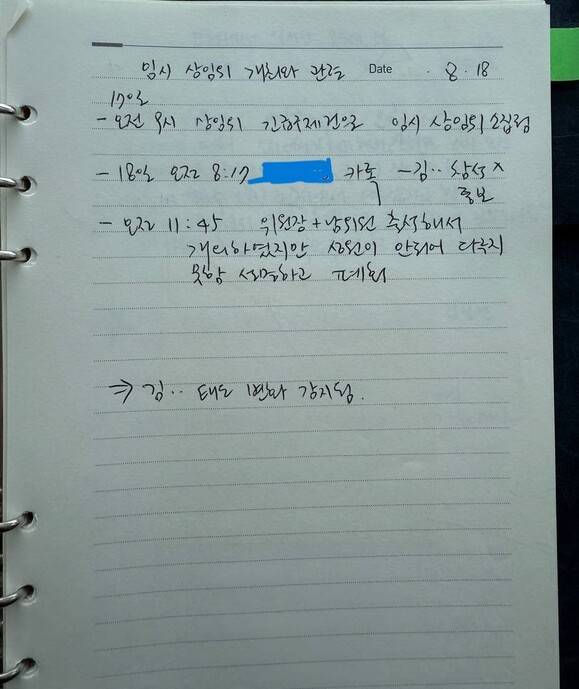 임시 상임위 개최와 관련 Date . 8 . 18
17일
- 오전 9시 상임위 긴급구제건으로 임시 상임위 소집됨
- 18일 오전 8:17 카톡 - 김‥ 참석 x
통보
- 오전 11:45 위원장 + 남위원 출석해서
개의하였지만 성원이 안되어 다루지
못함 설명하고 폐회
⇒ 김‥ 태도 변화 감지됨.